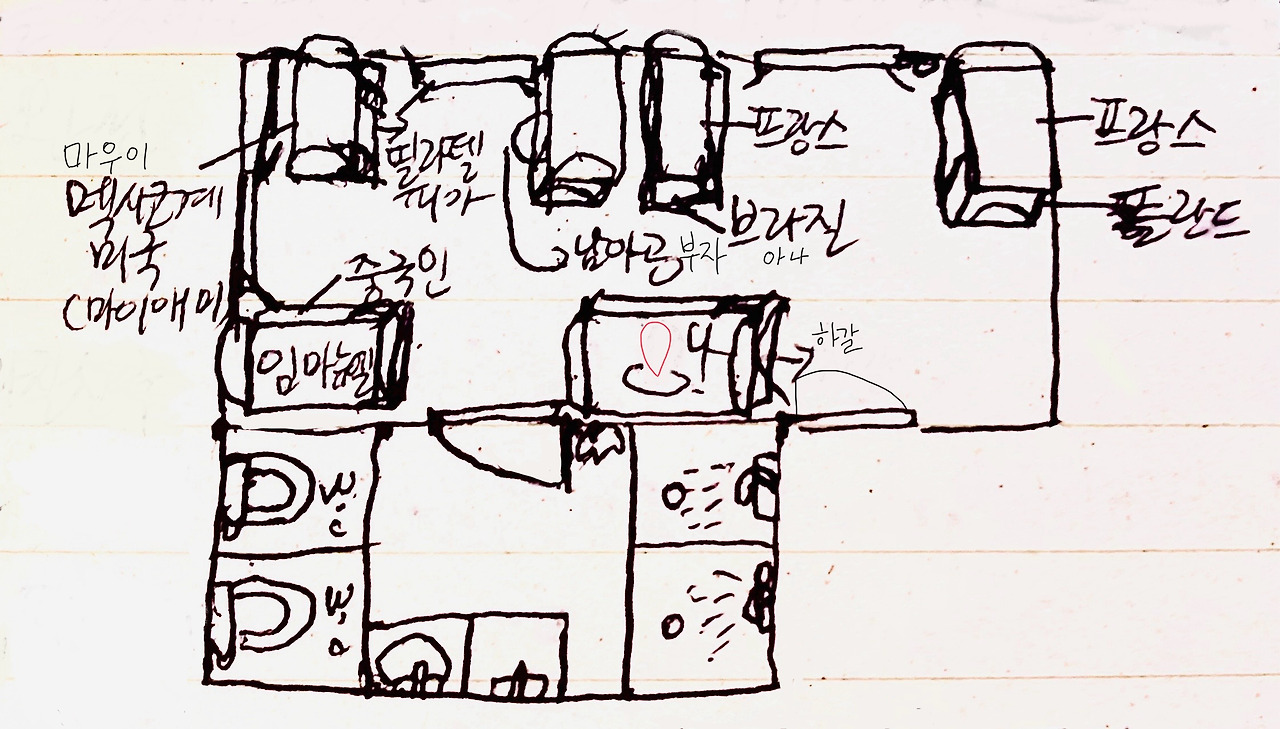 마우이
멕시코계
미국
(마이애미
필라델
피아
프랑스
프랑스
남아공 부자
브라질
아나
폴란드
중국인
임마누엘
나
하갈
W.C
W.C